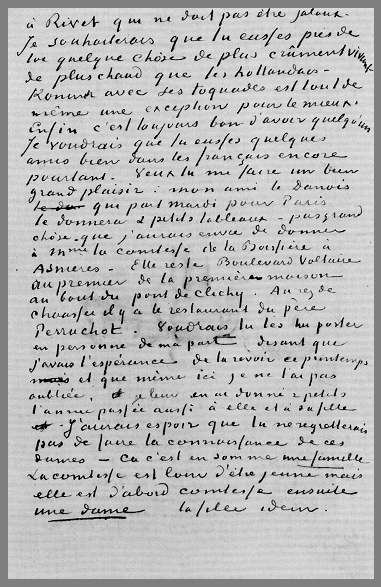 à Rivet qui ne doit pas être jaloux.
Je souhaiterais que tu eusses près de
toi quelque chose de plus crûment vivant
de plus chaud que les hollandais –
Koning avec ses toquades est tout de
même une exception pour le mieux.
Enfin c'est toujours bon d'avoir quelqu'un
Je voudrais que tu eusses quelques
amis bien dans les français encore
pourtant. Veux tu me faire un bien
grand plaisir: mon ami le Danois
qui part mardi pour Paris
te donnera 2 petits tableaux – pas grand
chose – que j'aurais envie de donner
à Mme la comtesse de la Boissière à
Asnieres – Elle reste Boulevard Voltaire
au premier de la première maison
au bout du pont de Clichy. Au rez de
chaussée il y a le restaurant du père
Perruchot. Voudrais tu les lui porter
en personne de ma part disant que
j'avais l'espérance de la revoir ce printemps
et que même ici je ne l'ai pas
oubliée, je leur en ai donné 2 petits
l'année passée aussi à elle et à sa fille
J'aurais espoir que tu ne regretterais
pas de faire la connaissance de ces
dames – Ca c'est en somme une famille
La comtesse est loin d'être jeune mais
elle est d'abord comtesse ensuite
une dame la fille idem.